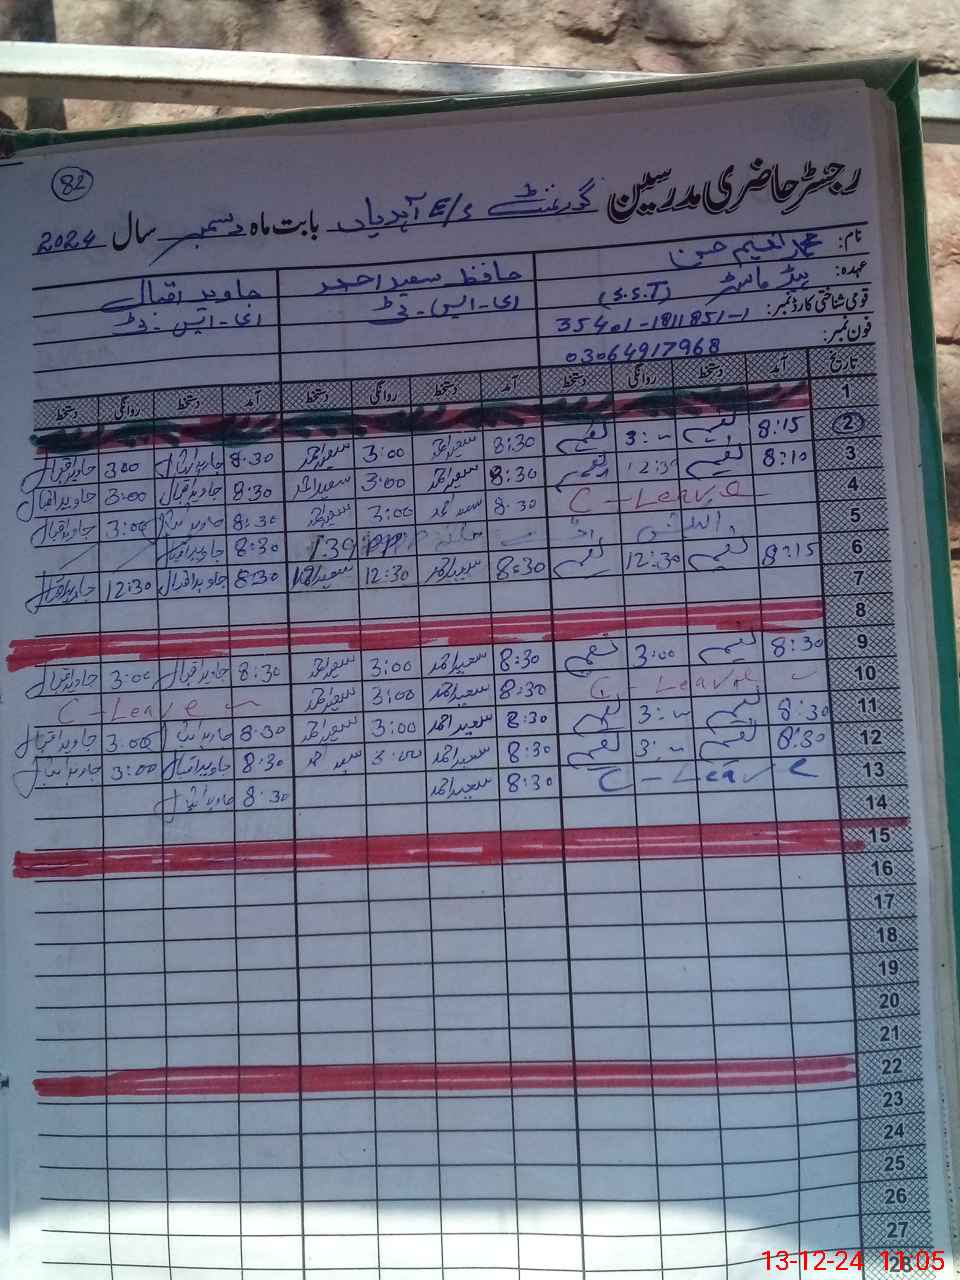 82
رجسٹر حاضری مدرسین گورنمنٹ E/S آہدیاں بابت ماہ دسمبر سال 2024
نام: محمد نعیم حسن حافظ سعید احمد جاوید اقبال
عہدہ: ہیڈ ماسٹر (S.S.T) ای-ایس-ٹی ای-ایس-ٹی
قومی شناختی کارڈ نمبر: 35401-1811851-1
فون نمبر: 03064917968
تاریخ آمد دستخط روانگی دستخط آمد دستخط روانگی دستخط آمد دستخط روانگی دستخط
1
2 8:15 نعیم 3:- نعیم 8:30 سعید احمد 3:00 سعید احمد 8:30 جاوید اقبال 3:00 جاوید اقبال
3 8:10 نعیم 12:30 نعیم 8:30 سعید احمد 3:00 سعید احمد 8:30 جاوید اقبال 3:00 جاوید اقبال
4 C-Leave 8:30 سعید احمد 3:00 سعید احمد 8:30 جاوید اقبال 3:00 جاوید اقبال
5 8:30 جاوید اقبال
6 8:15 نعیم 12:30 نعیم 8:30 سعید احمد 12:30 سعید احمد 8:30 جاوید اقبال 12:30 جاوید اقبال
7
8
9 8:30 نعیم 3:00 نعیم 8:30 سعید احمد 3:00 سعید احمد 8:30 جاوید اقبال 3:00 جاوید اقبال
10 C-Leave 8:30 سعید احمد 3:00 سعید احمد C-Leave
11 8:30 نعیم 3:- نعیم 8:30 سعید احمد 3:00 سعید احمد 8:30 جاوید اقبال 3:00 جاوید اقبال
12 8:30 نعیم 3:- نعیم 8:30 سعید احمد 3:00 سعید احمد 8:30 جاوید اقبال 3:00 جاوید اقبال
13 C-Leave 8:30 سعید احمد 8:30 جاوید اقبال
14
15
16
17
18
19
20
21
22
23
24
25
26
27
28
13-12-24 11:05